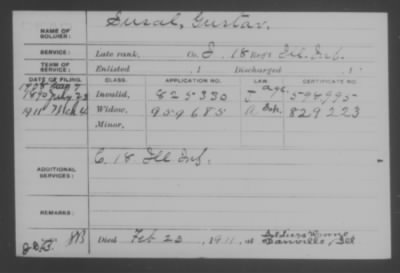 NAME OF SOLDIER: Susal, Gustav.
SERVICE: Late rank, Co. I, 18 Reg't Ill. Inf.
TERM OF SERVICE: Enlisted , 1 Discharged , 1
DATE OF FILING. CLASS. APPLICATION NO. LAW. CERTIFICATE NO.
1890 July 23 Invalid, 825330 J 598995
1911 Mch Widow, 959685 A 829223
Minor,
ADDITIONAL SERVICES: C. 18 Ill Inf.
REMARKS:
Died Feb 23, 1911, at Soldiers Home
Danville, Ill